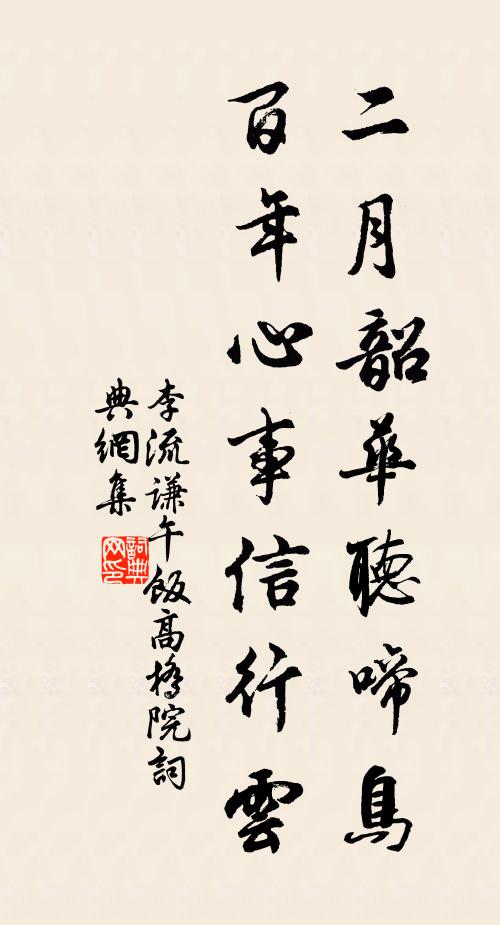 二月韶華聽啼鳥
百年心事信行雲
李流謙午飯高橋院詞
典網集
詞典網印